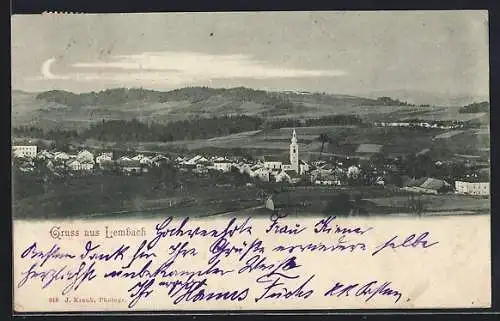 Gruss aus Lembach
Hochverehrte Frau Kiener
Besten Dank für Ihre Grüße erwiedere selbe
herzlichst in unbekannter Weise
Ihr Hanns Fuchs
918 J. Kränk, Photogr.